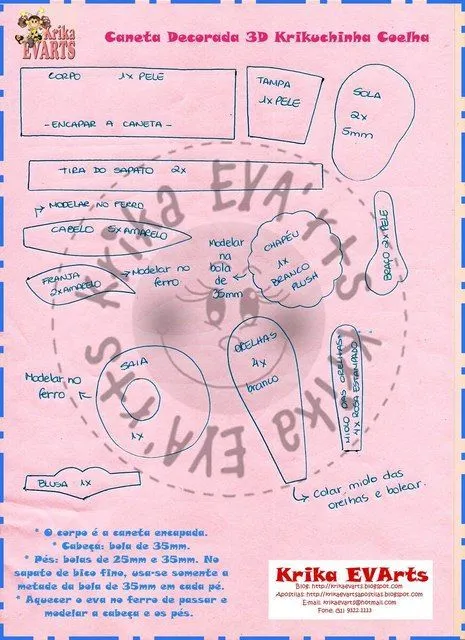 Krika
EVARTS
Caneta Decorada 3D Krikuchinha Coelha
CORPO 1X PELE
- ENCAPAR A CANETA -
TAMPA
1X PELE
SOLA
2x
5mm
TIRA DO SAPATO 2x
MODELAR NO FERRO
CABELO 5X AMARELO
FRANJA
2X AMARELO
Modelar no
ferro
Modelar
na
bola
de
35mm
CHAPÉU
1X
BRANCO
PLUSH
BRAÇO 2X PELE
SAIA
1x
Modelar no
ferro
ORELHAS
4x
branco
MIOLO DAS ORELHAS
4X ROSA ESTAMPADO
Colar miolo das
orelhas e bolear.
BLUSA 1X
Krika EVA'rtxS
Krika EVA'rtxS
* O corpo é a caneta encapada.
* Cabeça: bola de 35mm.
* Pés: bolas de 25mm e 35mm. No
sapato de bico fino, usa-se somente a
metade da bola de 35mm em cada pé.
* Aquecer o eva no ferro de passar e
modelar a cabeça e os pés.
Krika EVArts
Blog: http://krikaevarts.blogspot.com
Apostilas: http://krikaevartsapostilas.blogspot.com
E-mail: krikaevarts@hotmail.com